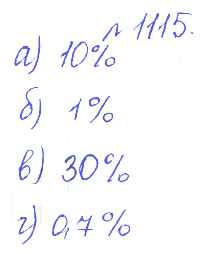 № 1115.
а) 10%
б) 1%
в) 30%
г) 0,7%